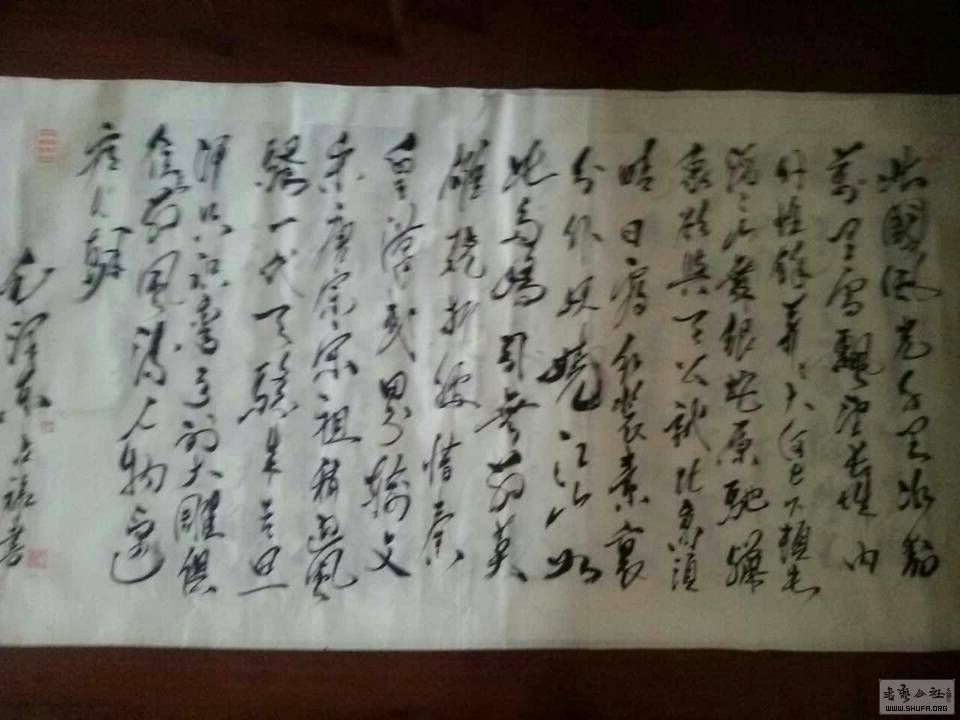 北國風光千里冰封
萬里雪飄望長城內
外惟餘莽莽大河上下頓失
滔滔山舞銀蛇原馳蠟
象欲與天公試比高須
晴日看紅裝素裹
分外妖嬈江山如
此多嬌引無數英
雄競折腰惜秦
皇漢武略輸文
采唐宗宋祖稍遜風
騷一代天驕成吉思
汗只識彎弓射大雕俱
往矣數風流人物還
看今朝
毛澤東 書
WWW.SHUFA.ORG